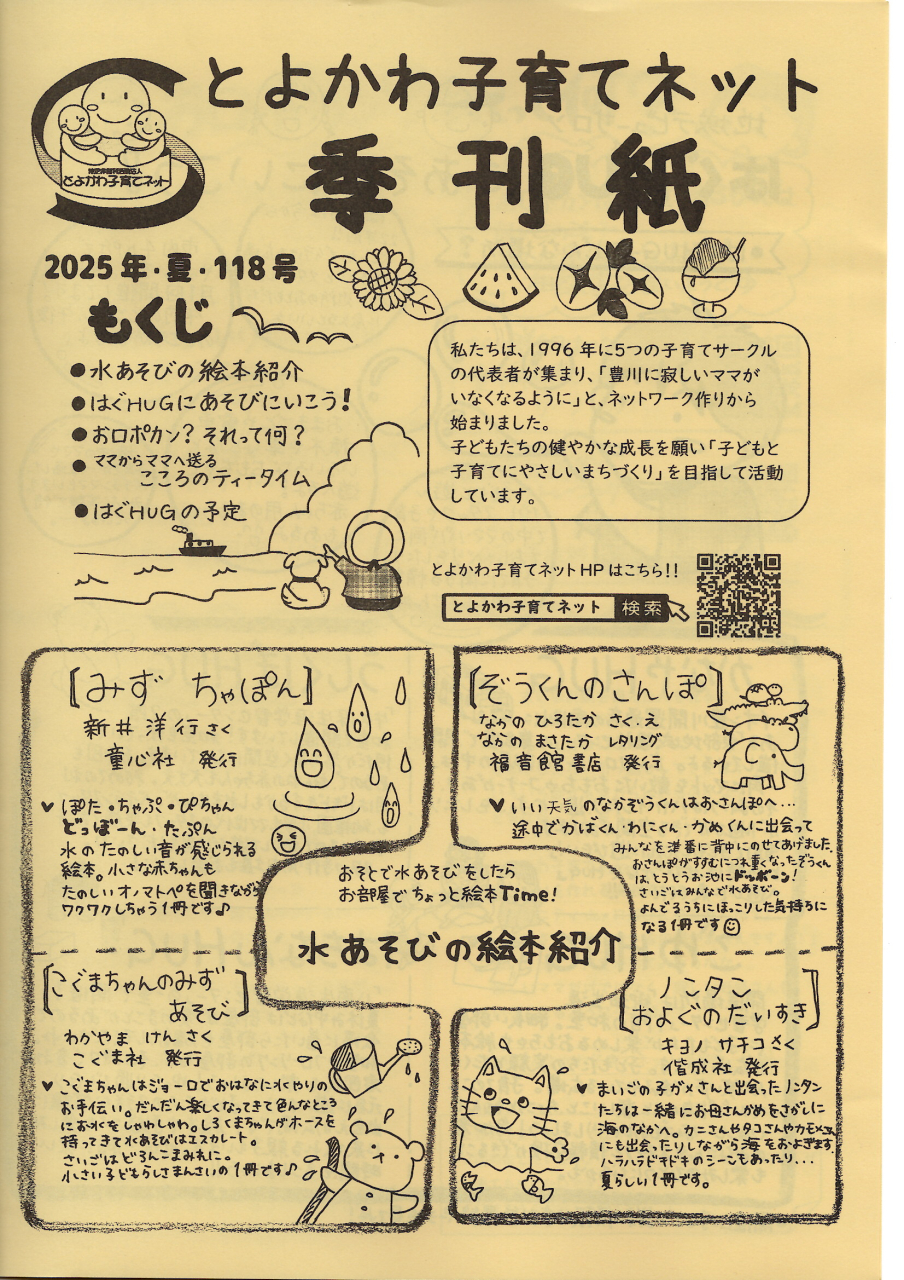 とよかわ子育てネット
季刊紙
特定非営利活動法人
とよかわ子育てネット
2025年・夏・118号
もくじ
●水あそびの絵本紹介
●はぐHUGにあそびにいこう!
●お口ポカン?それって何?
●ママからママへ送る
こころのティータイム
●はぐHUGの予定
私たちは、1996年に5つの子育てサークル
の代表者が集まり、「豊川に寂しいママが
いなくなるように」と、ネットワーク作りから
始まりました。
子どもたちの健やかな成長を願い「子どもと
子育てにやさしいまちづくり」を目指して活動
しています。
とよかわ子育てネットHPはこちら!!
とよかわ子育てネット 検索
[みず ちゃぽん]
新井洋行 さく
童心社 発行
♥ ぽた・ちゃぷ・ぴちゃん
どっぼーん・たぷん
水のたのしい音が感じられる
絵本。小さな赤ちゃんも
たのしいオノマトペを聞きながら
ワクワクしちゃう1冊です♪
[ぞうくんのさんぽ]
なかの ひろたか さく.え
なかの まさたか レタリング
福音館書店 発行
♥ いい天気のなかぞうくんはおさんぽへ...
途中でかばくん・わにくん・かめくんに出会って
みんなを準番に背中にのせてあげました。
おさんぽがすすむにつれ重くなったぞうくん
は、とうとうお池にドッボーン!
さいごはみんなで水あそび。
よんでるうちにほっこりした気持ちに
なる1冊です☺
おそとで水あそびをしたら
お部屋でちょっと絵本Time!
水あそびの絵本紹介
[こぐまちゃんのみず
あそび]
わかやま けん さく
こぐま社 発行
♥ こぐまちゃんはジョーロでおはなに水やりの
お手伝い。だんだん楽しくなってきて色んなところ
にお水をしゃわしゃわ。しろくまちゃんがホースを
持ってきて水あそびはエスカレート。
さいごはどろんこまみれに。
小さい子どもらしさまんさいの1冊です♪
[ノンタン
およぐのだいすき]
キヨノ サチコ さく
偕成社 発行
♥ まいごの子ガメさんと出会ったノンタン
たちは一緒にお母さんかめをさがしに
海のなかへ。カニさんやタコさんやカモメさん
にも出会ったりしながら海をおよぎます。
ハラハラドキドキのシーンもあったり...
夏らしい1冊です。